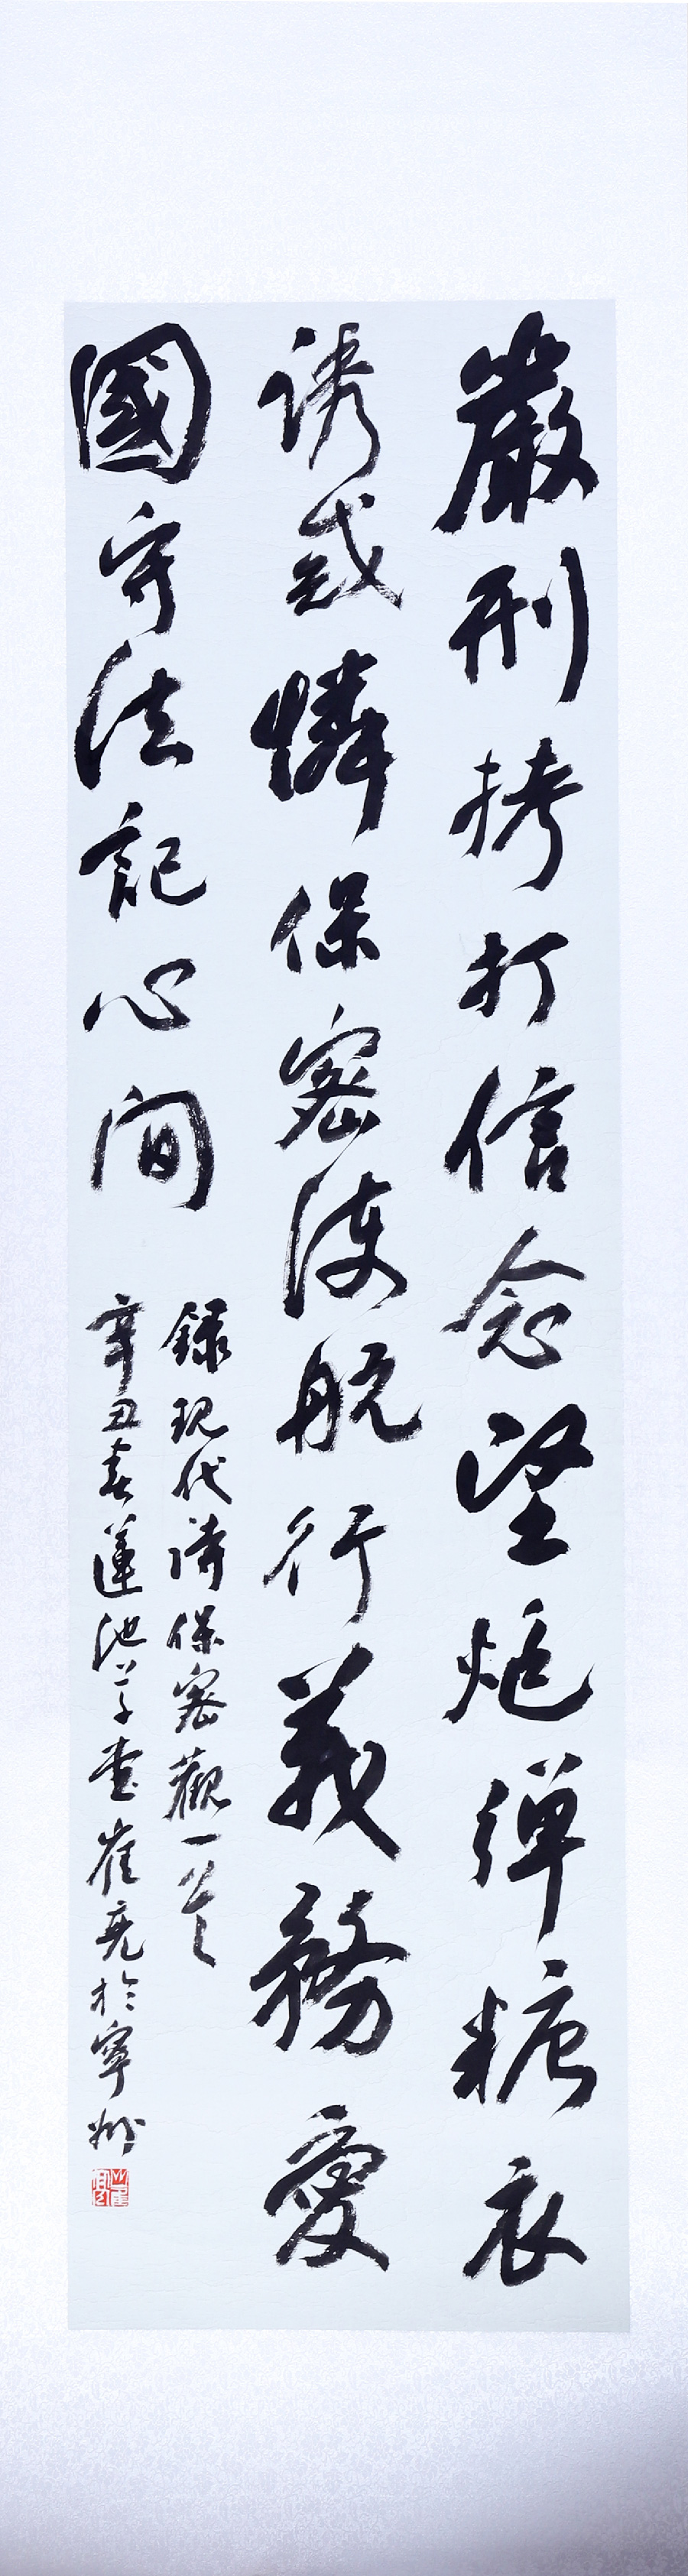 嚴刑拷打信念堅炮彈糖衣
誘惑憐保密法航行義務愛
國守法記心間
録現代詩保密觀一首
辛丑春蓮池草堂崔亮於寧州